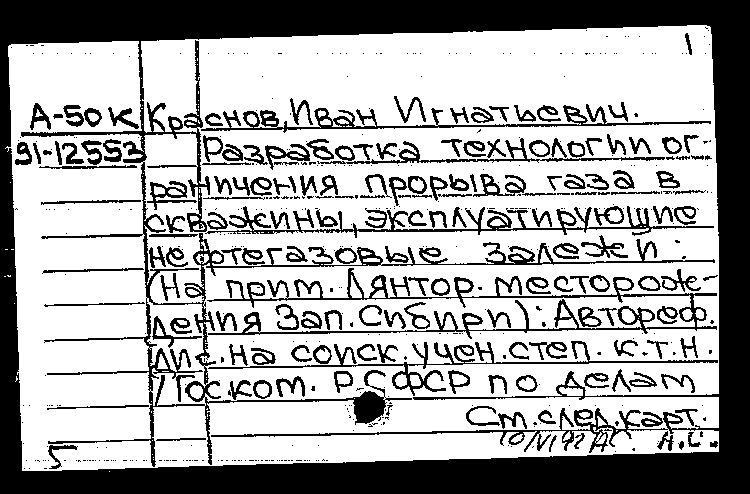 1
А-50к Краснов, Иван Игнатьевич.
91-12553 Разработка технологии ог-
раничения прорыва газа в
скважины, эксплуатирующие
нефтегазовые залежи:
(На прим. Лянтор. месторож-
дения Зап. Сибири): Автореф.
дис. на соиск. учен. степ. к.т.н.
/Гос.ком. РСФСР по делам
См. след. карт.
5